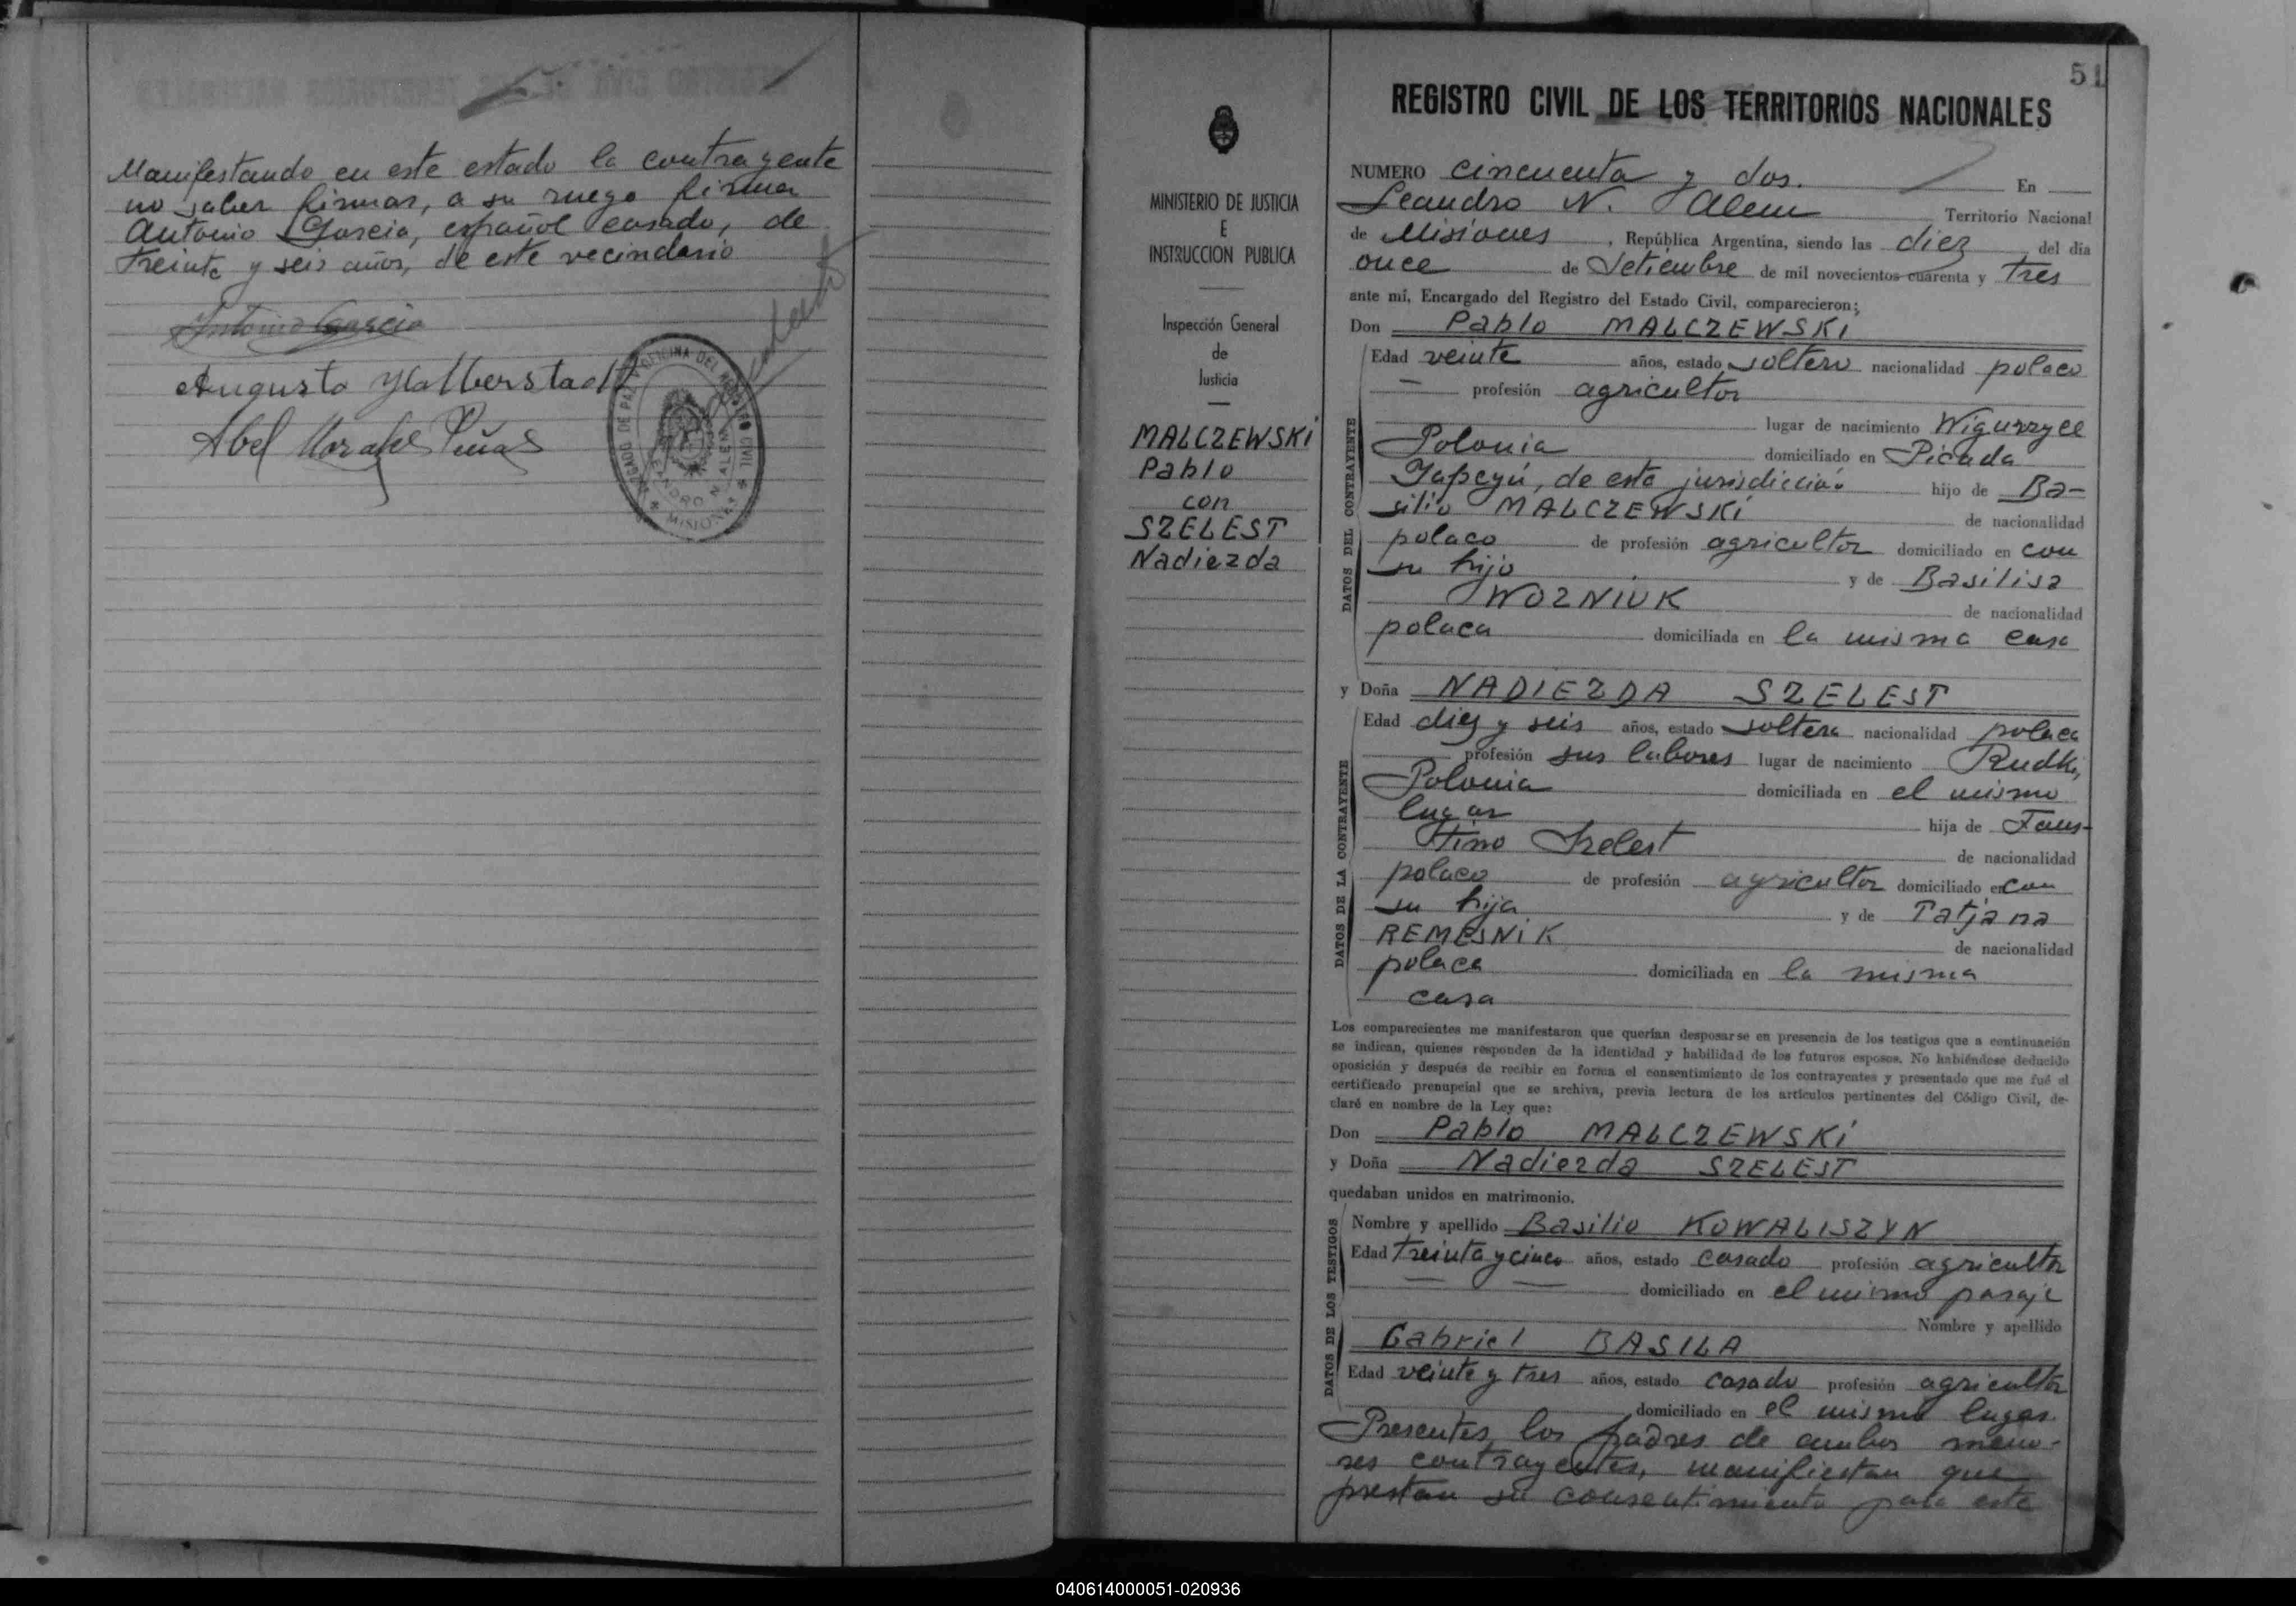 Manifestando en este estado la contrayente
no saber firmar, a su ruego firma
Antonio Garcia, español casado, de
treinta y seis años, de este vecindario
Antonio Garcia
Augusto Halberstadt
Abel Morales Peñas
JUZGADO DE PAZ Y OFICINA DEL REGISTRO CIVIL
LEANDRO N. ALEM
* MISIONES *
MINISTERIO DE JUSTICIA
E
INSTRUCCION PUBLICA
Inspección General
de
Justicia
MALCZEWSKI
Pablo
con
SZELEST
Nadiezda
51
REGISTRO CIVIL DE LOS TERRITORIOS NACIONALES
NUMERO cincuenta y dos. En
Leandro N. Alem Territorio Nacional
de Misiones, República Argentina, siendo las diez del día
once de Setiembre de mil novecientos cuarenta y tres
ante mí, Encargado del Registro del Estado Civil, comparecieron:
Don Pablo MALCZEWSKI
DATOS DEL CONTRAYENTE
Edad veinte años, estado soltero nacionalidad polaco
— profesión agricultor
lugar de nacimiento Wigurzyce
Polonia domiciliado en Picada
Yapeyú, de esta jurisdicción hijo de Ba-
silio MALCZEWSKI de nacionalidad
polaco de profesión agricultor domiciliado en con
su hijo y de Basilisa
WOZNIUK de nacionalidad
polaca domiciliada en la misma casa
y Doña NADIEZDA SZELEST
DATOS DE LA CONTRAYENTE
Edad diez y seis años, estado soltera nacionalidad polaca
profesión sus labores lugar de nacimiento Rudki,
Polonia domiciliada en el mismo
lugar hija de Faus-
tino Szelest de nacionalidad
polaco de profesión agricultor domiciliado en con
su hija y de Tatjana
REMESNIK de nacionalidad
polaca domiciliada en la misma
casa
Los comparecientes me manifestaron que querían desposarse en presencia de los testigos que a continuación
se indican, quienes responden de la identidad y habilidad de los futuros esposos. No habiéndose deducido
oposición y después de recibir en forma el consentimiento de los contrayentes y presentado que me fué el
certificado prenupcial que se archiva, previa lectura de los artículos pertinentes del Código Civil, de-
claré en nombre de la Ley que:
Don Pablo MALCZEWSKI
y Doña Nadiezda SZELEST
quedaban unidos en matrimonio.
DATOS DE LOS TESTIGOS
Nombre y apellido Basilio KOWALISZYN
Edad treinta y cinco años, estado casado profesión agricultor
— — domiciliado en el mismo paraje
Nombre y apellido
Gabriel BASILA
Edad veinte y tres años, estado casado profesión agricultor
domiciliado en el mismo lugar.
Presentes los padres de ambos meno-
res contrayentes, manifiestan que
prestan su consentimiento para este
040614000051-020936